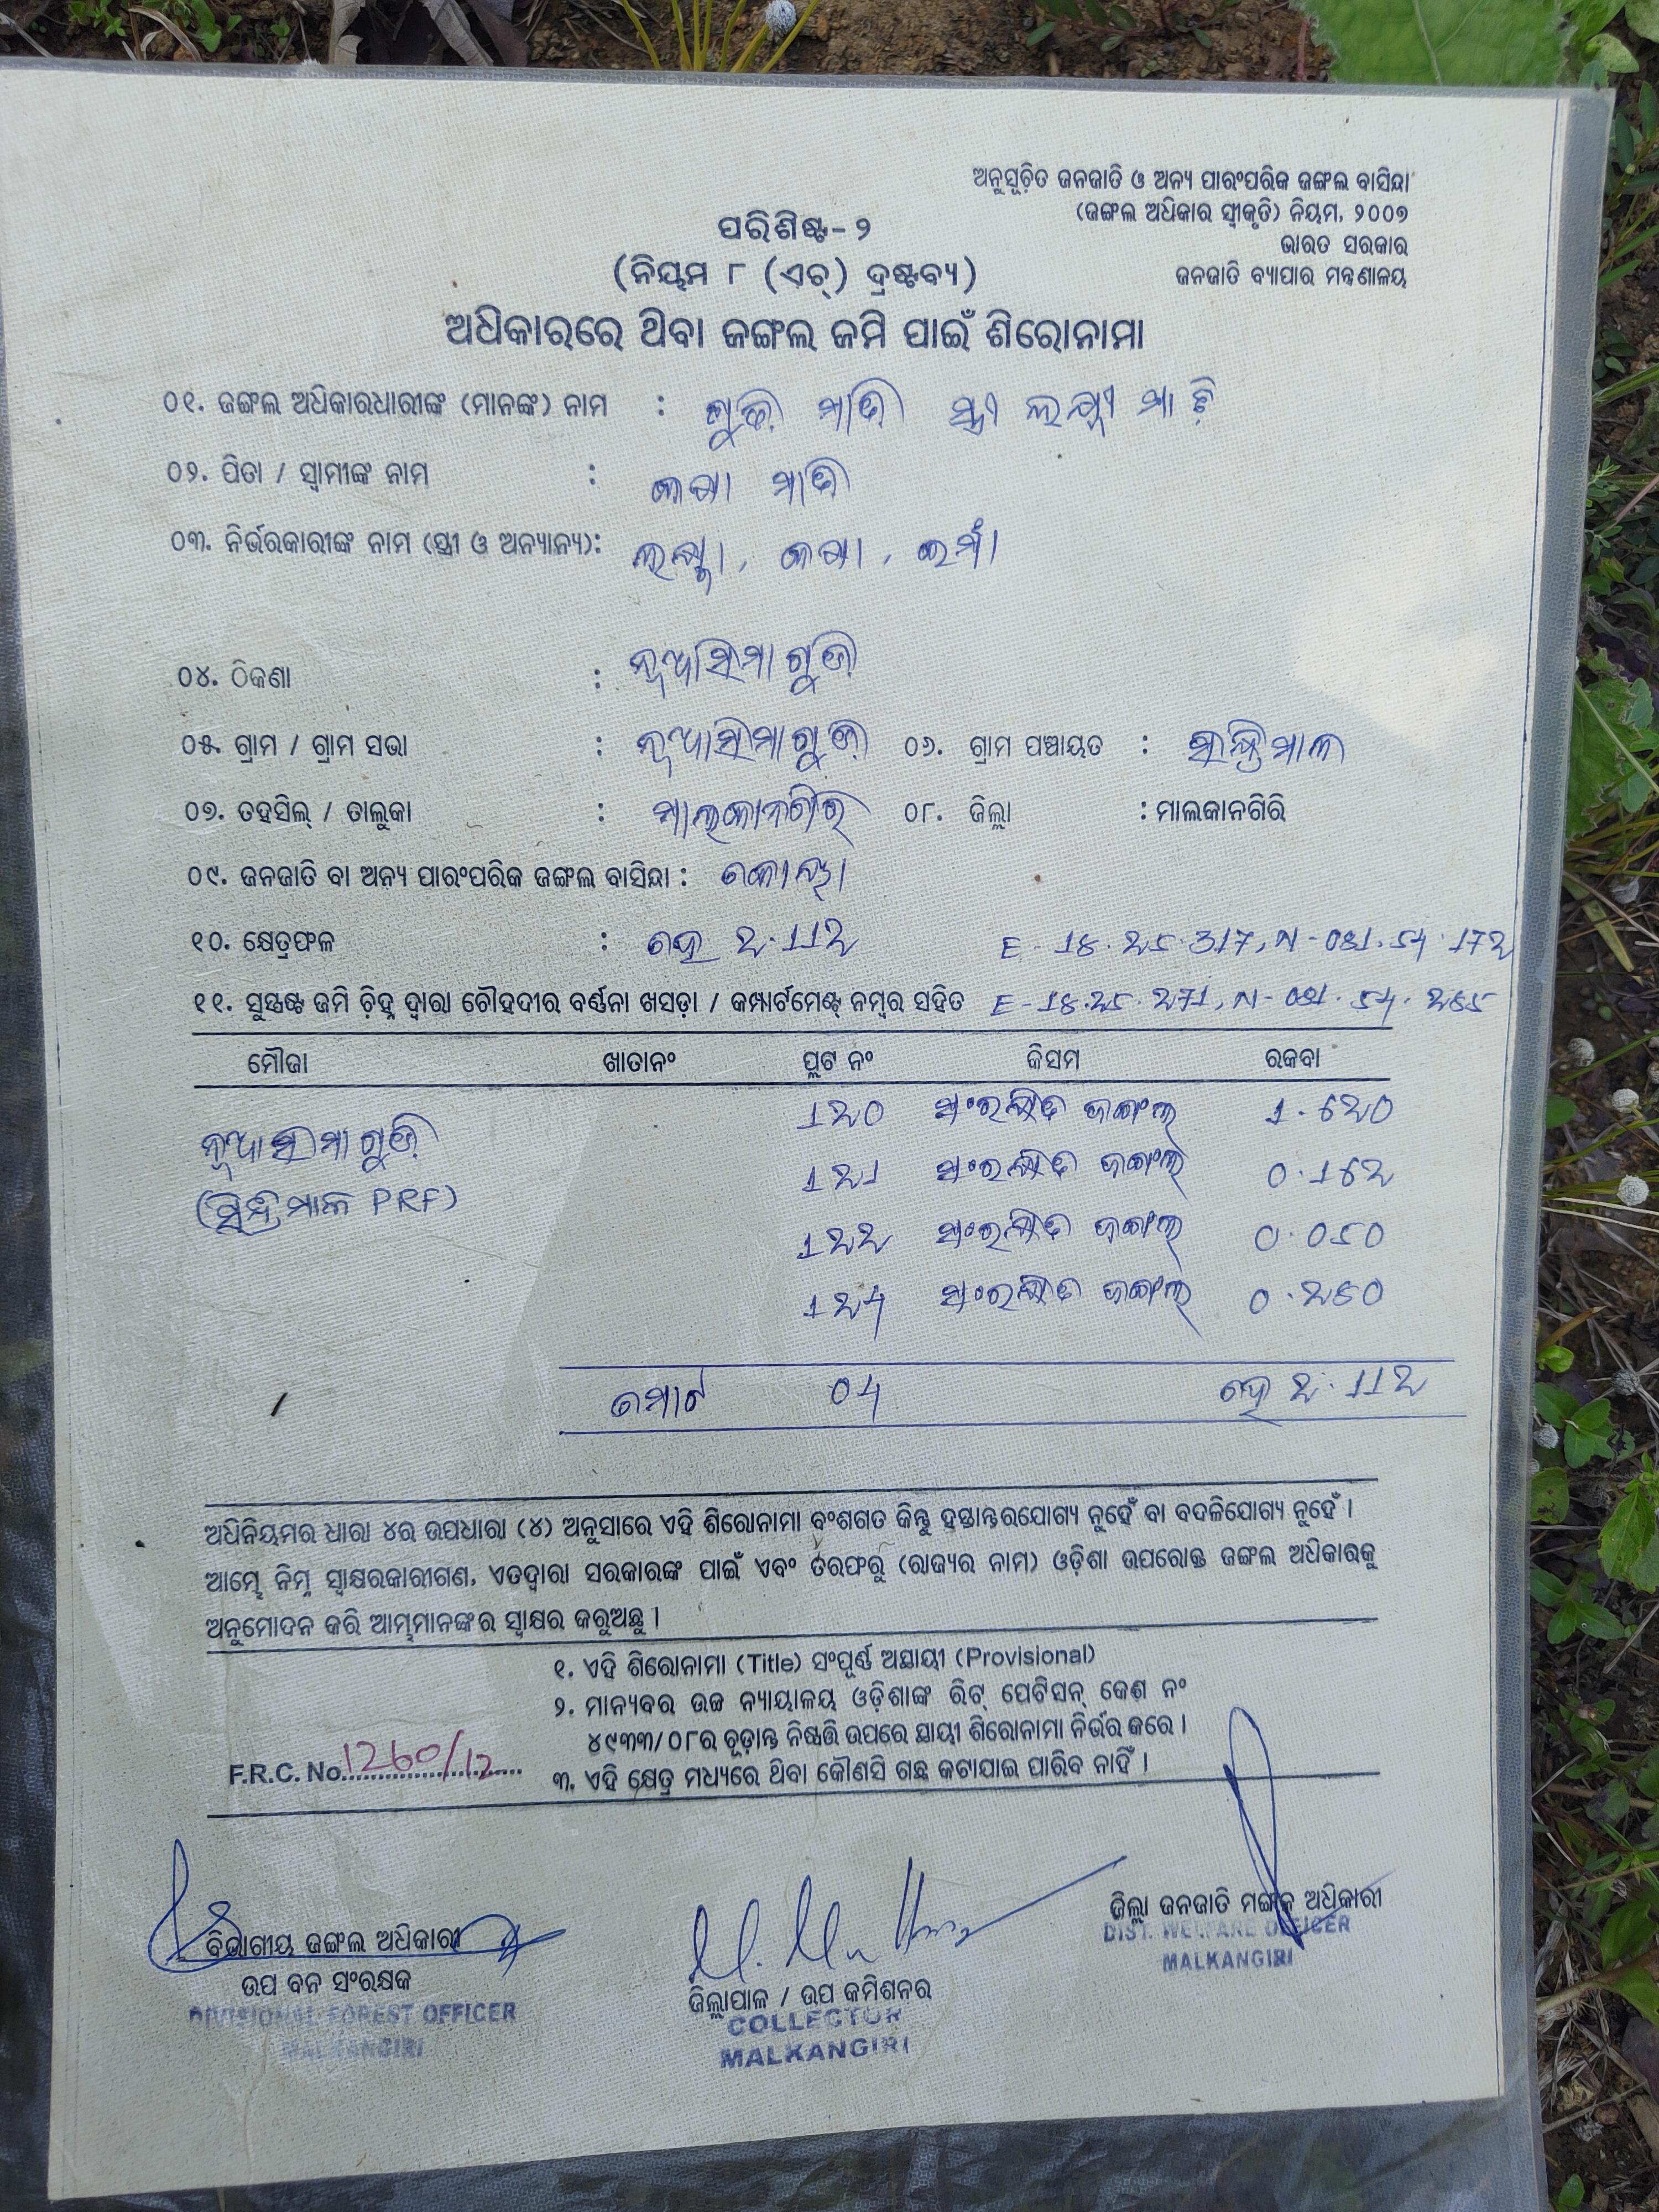 ଅନୁସୂଚିତ ଜନଜାତି ଓ ଅନ୍ୟ ପାରଂପରିକ ଜଙ୍ଗଲ ବାସିନ୍ଦା
(ଜଙ୍ଗଲ ଅଧିକାର ସ୍ୱୀକୃତି) ନିୟମ, ୨୦୦୭
ଭାରତ ସରକାର
ଜନଜାତି ବ୍ୟାପାର ମନ୍ତ୍ରଣାଳୟ
ପରିଶିଷ୍ଟ-୨
(ନିୟମ ୮ (ଏଚ୍) ଦ୍ରଷ୍ଟବ୍ୟ)
ଅଧିକାରରେ ଥିବା ଜଙ୍ଗଲ ଜମି ପାଇଁ ଶିରୋନାମା
୦୧. ଜଙ୍ଗଲ ଅଧିକାରଧାରୀଙ୍କ (ମାନଙ୍କ) ନାମ :
୦୨. ପିତା / ସ୍ୱାମୀଙ୍କ ନାମ :
୦୩. ନିର୍ଭରକାରୀଙ୍କ ନାମ (ସ୍ତ୍ରୀ ଓ ଅନ୍ୟାନ୍ୟ):
୦୪. ଠିକଣା : ନୂଆସୀମାଗୁଡ଼ା
୦୫. ଗ୍ରାମ / ଗ୍ରାମ ସଭା : ନୂଆସୀମାଗୁଡ଼ା ୦୬. ଗ୍ରାମ ପଞ୍ଚାୟତ :
୦୭. ତହସିଲ୍ / ତାଲୁକା : ମାଲକାନଗିରି ୦୮. ଜିଲ୍ଲା : ମାଲକାନଗିରି
୦୯. ଜନଜାତି ବା ଅନ୍ୟ ପାରଂପରିକ ଜଙ୍ଗଲ ବାସିନ୍ଦା : କୋୟା
୧୦. କ୍ଷେତ୍ରଫଳ : ହେ 2.112 E-18.25.317, N-081.54.172
୧୧. ସୁସ୍ପଷ୍ଟ ଜମି ଚିହ୍ନ ଦ୍ୱାରା ଚୌହଦୀର ବର୍ଣ୍ଣନା ଖସଡ଼ା / କମ୍ପାର୍ଟମେଣ୍ଟ୍ ନମ୍ବର ସହିତ E-18.25.271, N-081.54.265
ମୌଜା ଖାତାନଂ ପ୍ଲଟ ନଂ କିସମ ରକବା
120 ସଂରକ୍ଷିତ ଜଙ୍ଗଲ 1.620
ନୂଆସୀମାଗୁଡ଼ା
121 ସଂରକ୍ଷିତ ଜଙ୍ଗଲ 0.162
PRF)
122 ସଂରକ୍ଷିତ ଜଙ୍ଗଲ 0.050
124 ସଂରକ୍ଷିତ ଜଙ୍ଗଲ 0.280
ମୋଟ 04 ହେ 2.112
ଅଧିନିୟମର ଧାରା ୪ର ଉପଧାରା (୪) ଅନୁସାରେ ଏହି ଶିରୋନାମା ବଂଶଗତ କିନ୍ତୁ ହସ୍ତାନ୍ତରଯୋଗ୍ୟ ନୁହେଁ ବା ବଦଳିଯୋଗ୍ୟ ନୁହେଁ ।
ଆମ୍ଭେ ନିମ୍ନ ସ୍ୱାକ୍ଷରକାରୀଗଣ, ଏତଦ୍ୱାରା ସରକାରଙ୍କ ପାଇଁ ଏବଂ ତରଫରୁ (ରାଜ୍ୟର ନାମ) ଓଡ଼ିଶା ଉପରୋକ୍ତ ଜଙ୍ଗଲ ଅଧିକାରକୁ
ଅନୁମୋଦନ କରି ଆମ୍ଭମାନଙ୍କର ସ୍ୱାକ୍ଷର କରୁଅଛୁ ।
୧. ଏହି ଶିରୋନାମା (Title) ସଂପୂର୍ଣ୍ଣ ଅସ୍ଥାୟୀ (Provisional)
୨. ମାନ୍ୟବର ଉଚ୍ଚ ନ୍ୟାୟାଳୟ ଓଡ଼ିଶାଙ୍କ ରିଟ୍ ପେଟିସନ୍ କେଶ୍ ନଂ
୪୯୩୩/୦୮ର ଚୂଡ଼ାନ୍ତ ନିଷ୍ପତ୍ତି ଉପରେ ସ୍ଥାୟୀ ଶିରୋନାମା ନିର୍ଭର କରେ ।
F.R.C. No. 1260/12
୩. ଏହି କ୍ଷେତ୍ର ମଧ୍ୟରେ ଥିବା କୌଣସି ଗଛ କଟାଯାଇ ପାରିବ ନାହିଁ ।
ଜିଲ୍ଲା ଜନଜାତି ମଙ୍ଗଳ ଅଧିକାରୀ
DIST. WELFARE OFFICER
MALKANGIRI
ବିଭାଗୀୟ ଜଙ୍ଗଲ ଅଧିକାରୀ
ଉପ ବନ ସଂରକ୍ଷକ
DIVISIONAL FOREST OFFICER
MALKANGIRI
ଜିଲ୍ଲାପାଳ / ଉପ କମିଶନର
COLLECTOR
MALKANGIRI